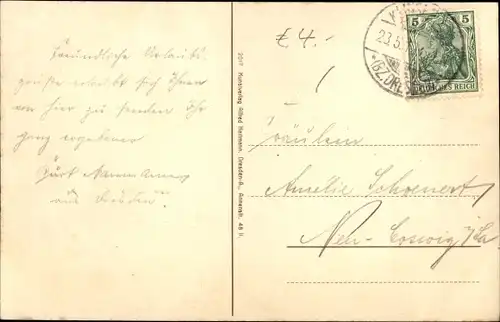 Freundliche Urlaubs-
grüße erlaubt sich Ihnen
von hier zu senden Ihr
ganz ergebener
Kurt
aus Dresden
2017 Kunstverlag Alfred Hartmann, Dresden-A., Annenstr. 48 II.
£4.-
23.5
(BZ.DRESD
5 5
DEUTSCHES REICH
Fräulein
Amélie Schoenert,
Neu-Coswig i/Sa.